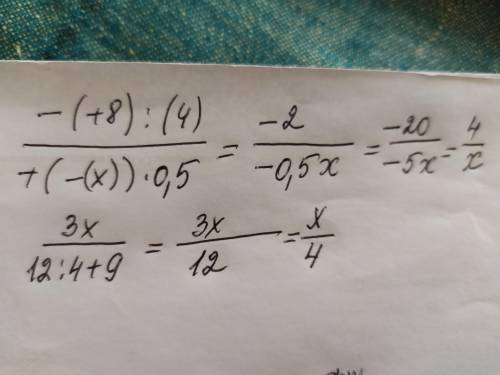 -(+8):(4) / +(-(x))·0,5 = -2 / -0,5x = -20 / -5x = 4 / x
3x / 12:4+9 = 3x / 12 = x / 4